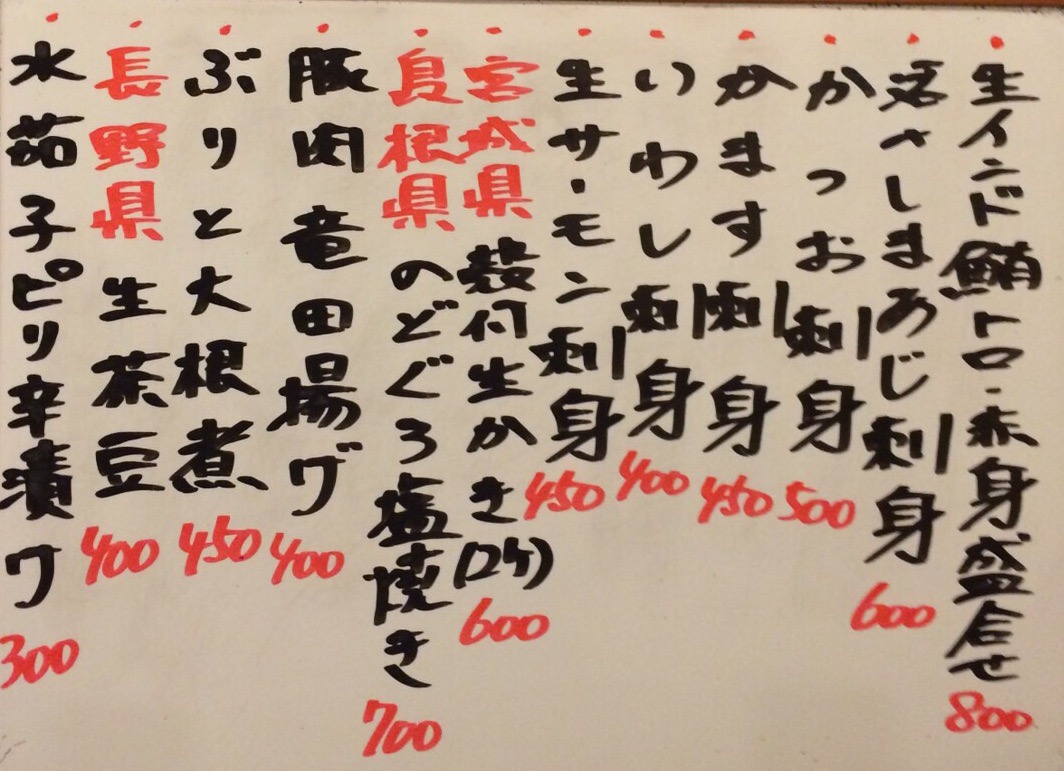 生インド鮪トロ・赤身盛合せ 800
活〆しまあじ刺身 600
かつお刺身 500
かます刺身 450
いわし刺身 400
生サーモン刺身 450
宮城県 殻付生かき(2ケ) 600
島根県 のどぐろ塩焼き 700
豚肉竜田揚ゲ 400
ぶりと大根煮 450
長野県 生茶豆 400
水茄子ピリ辛漬ケ 300